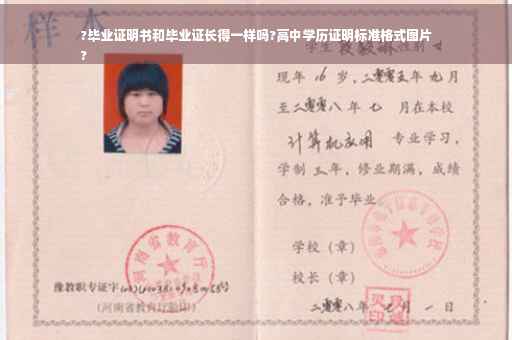 ?毕业证明书和毕业证长得一样吗?高中学历证明标准格式图片
?
样本
学生 性别 女
现年 16 岁，二零零五年 九月
至二零零八年 七 月在本校
计算机应用 专业学习，
学制 三年，修业期满，成绩
合格，准予毕业
学校（章）
河南省教育厅
校长（章）
豫教职专证字
（河南省教育厅验印）
二零零八年 七 月 一 日